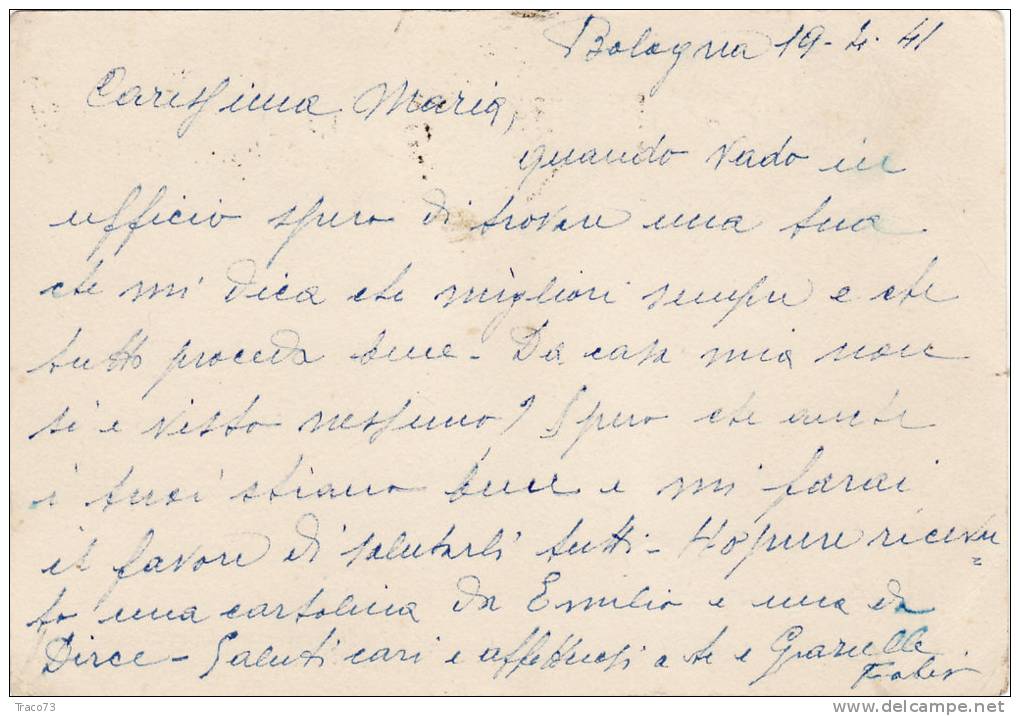 Bologna 19-4-41
Carissima Maria,
quando vado in
ufficio spero di trovare una tua
che mi dica che migliori sempre e che
tutto proceda bene - Da casa mia non
si è visto nessuno? Spero che anche
i tuoi stiano bene e mi farai
il favore di salutarli tutti - Ho pure ricevu=
to una cartolina da Emilio e una da
Dirce - Saluti cari e affettuosi a te e
Traco73
delcampe.net